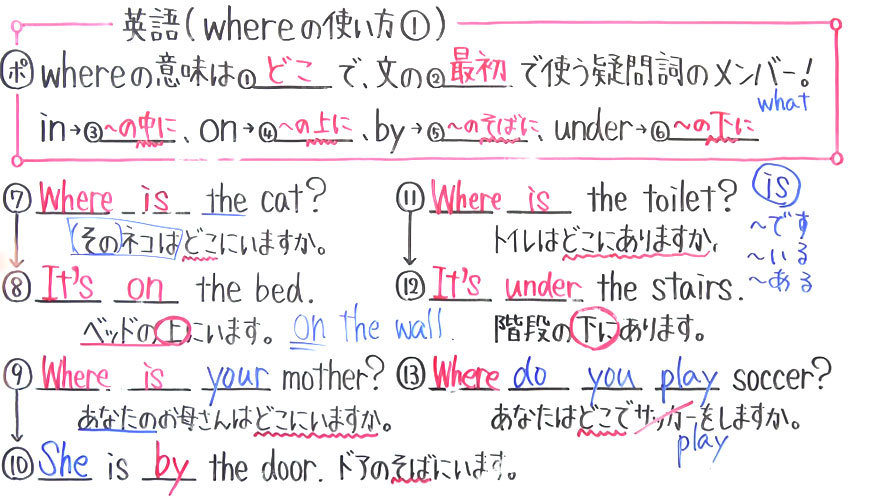 英語(whereの使い方①)
ポ whereの意味は①どこで、文の②最初で使う疑問詞のメンバー!
what
in→③~の中に、on→④~の上に、by→⑤~のそばに、under→⑥~の下に
⑦ Where is the cat?
(その)ネコはどこにいますか。
⑧ It's on the bed.
ベッドの上にいます。 on the wall.
⑨ Where is your mother?
あなたのお母さんはどこにいますか。
⑩ She is by the door. ドアのそばにいます。
⑪ Where is the toilet?
トイレはどこにありますか。
⑫ It's under the stairs.
階段の下にあります。
⑬ Where do you play soccer?
あなたはどこでサッカーをしますか。
play
is
~です
~いる
~ある